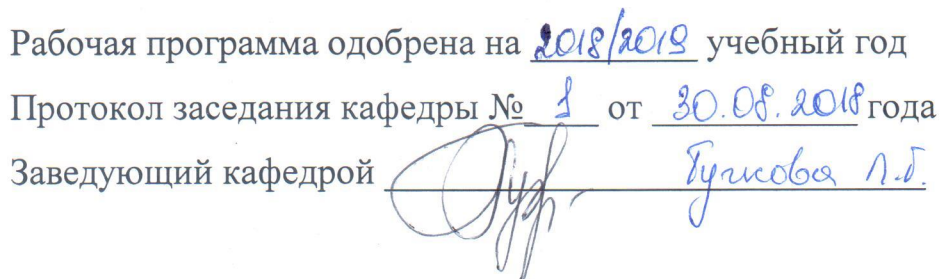 Рабочая программа одобрена на 2018/2019 учебный год
Протокол заседания кафедры № 1 от 30.08.2018 года
Заведующий кафедрой Гучкова Л.Б.